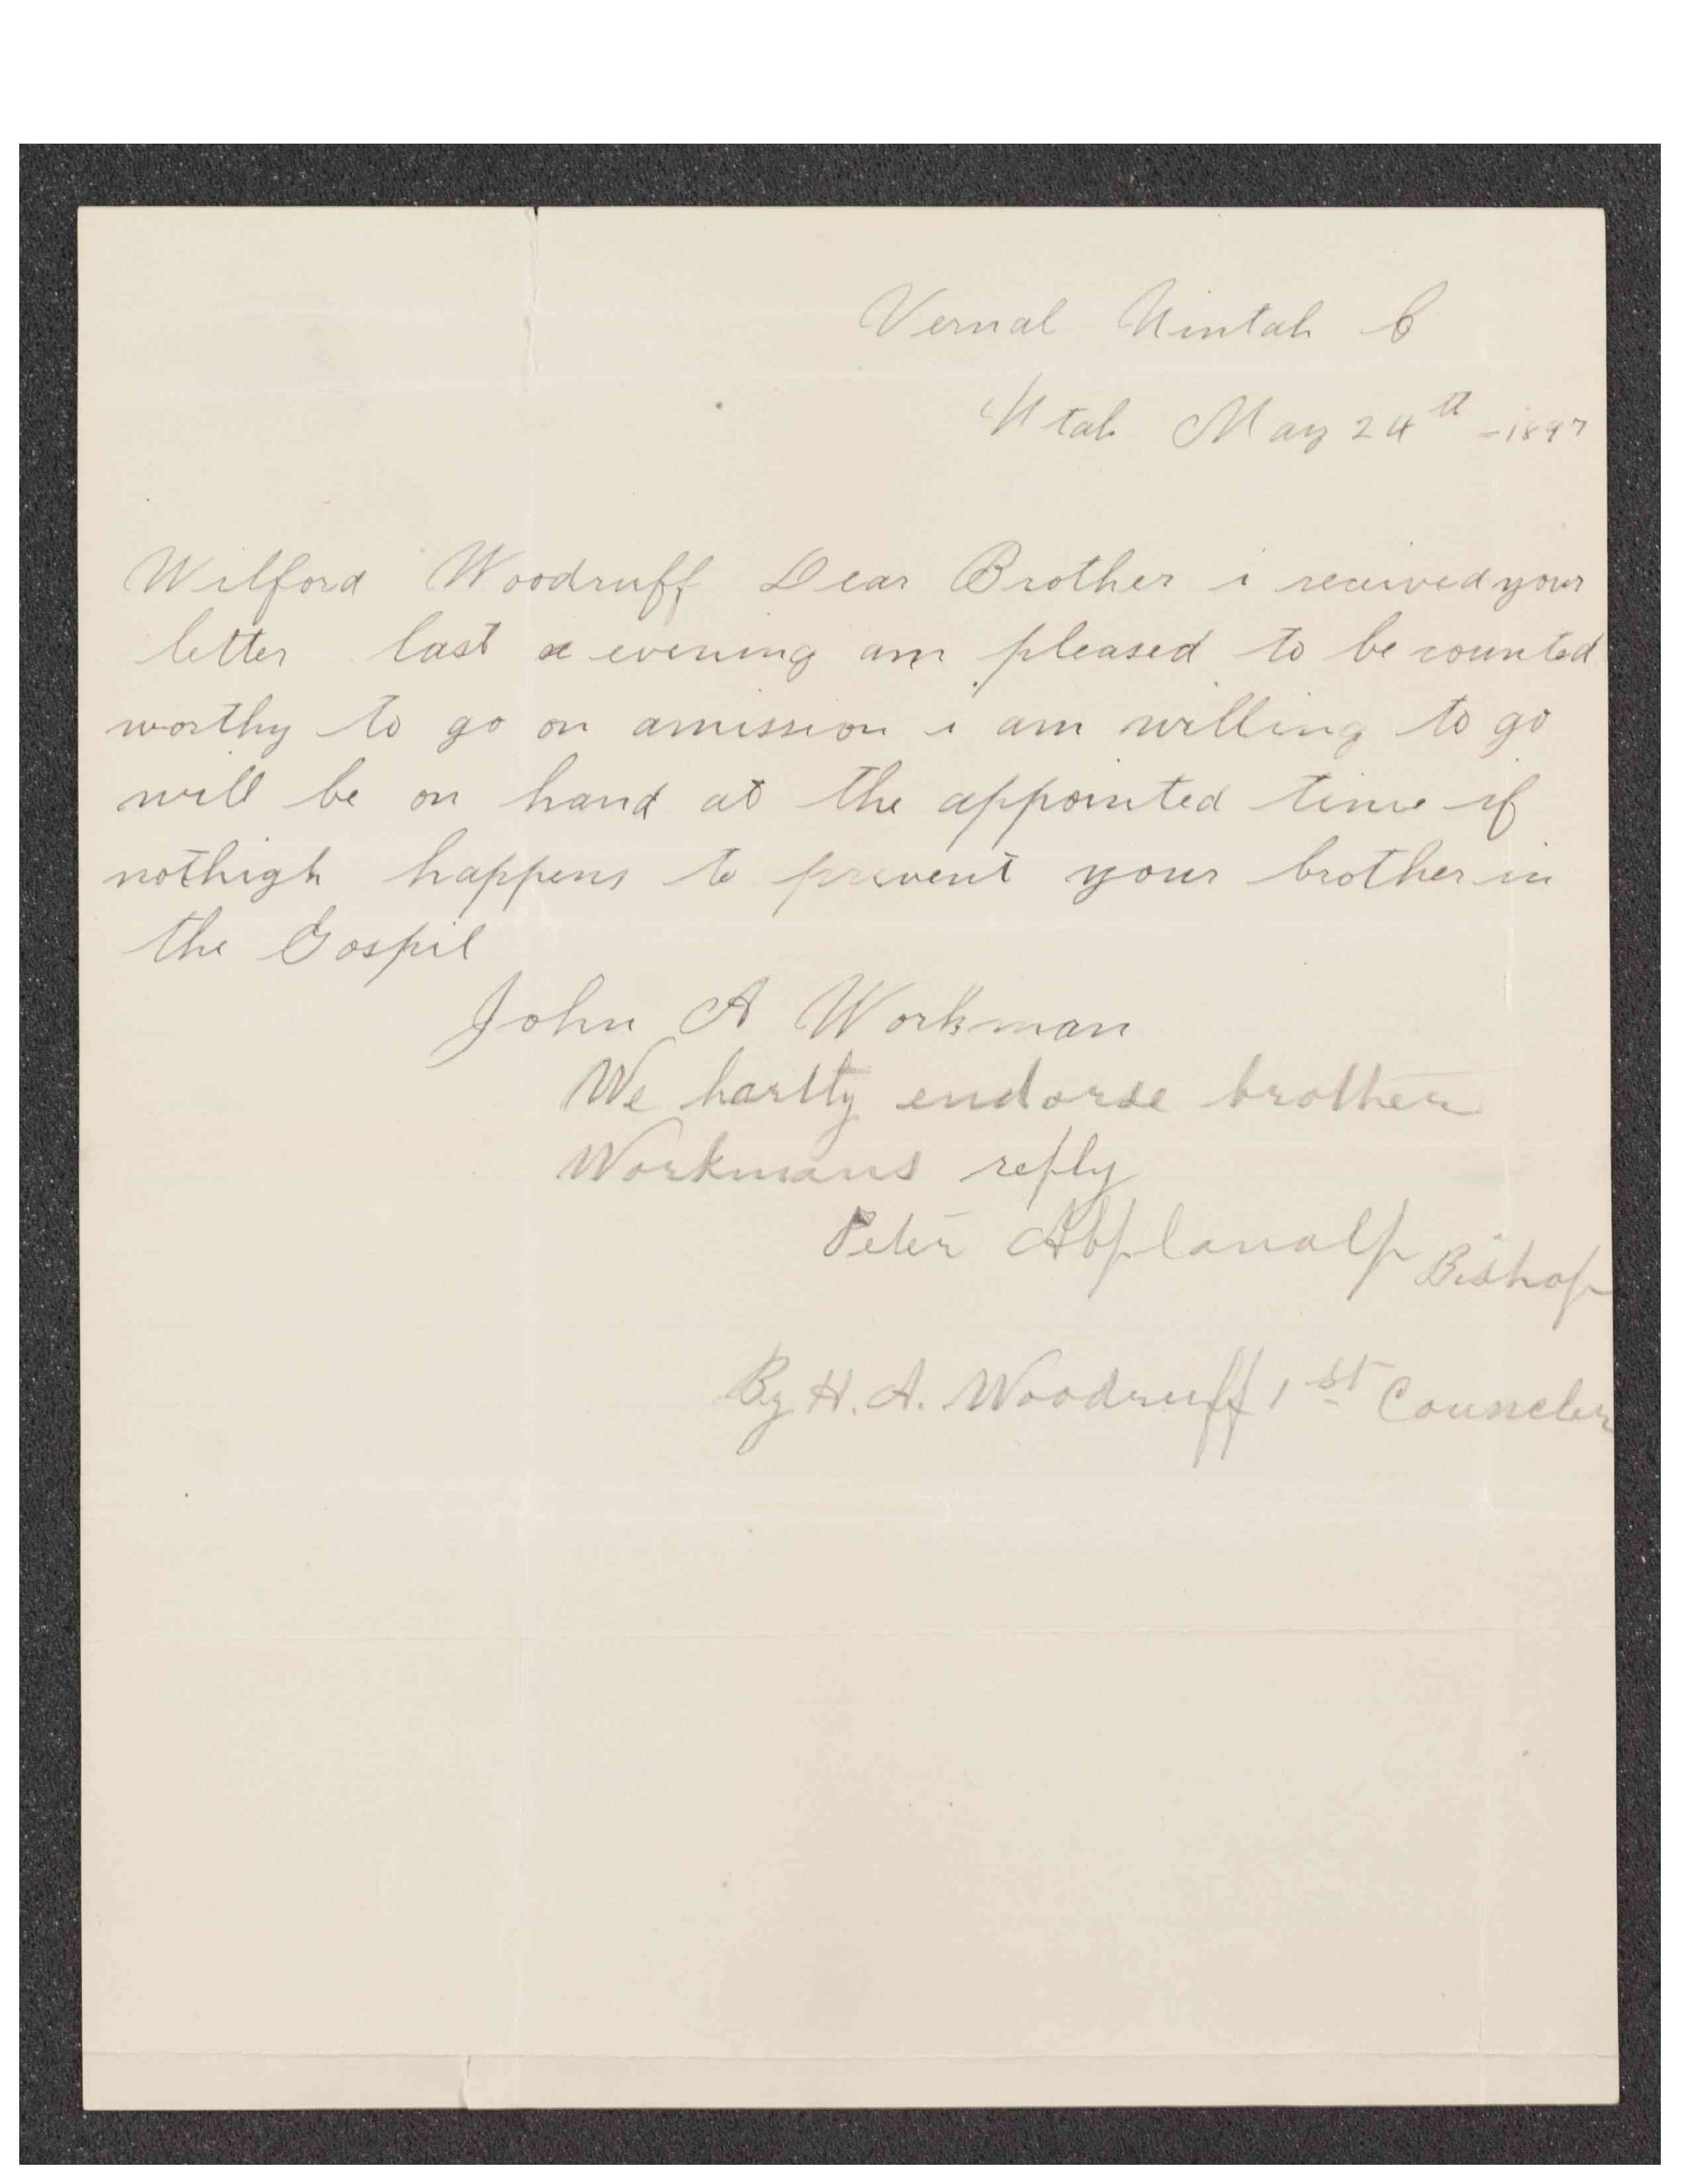 Vernal Uintah C
Utah May 24th -1897
Wilford Woodruff Dear Brother i received your
letter last a evening am pleased to be counted
worthy to go on amission i am willing to go
will be on hand at the appointed time if
nothigh happens to prevent your brother in
the Gospil
John A Workman
We hartty endorse brother
Workmans reply
Peter Abplanalp Bishop
By H. A. Woodruff 1st Councler